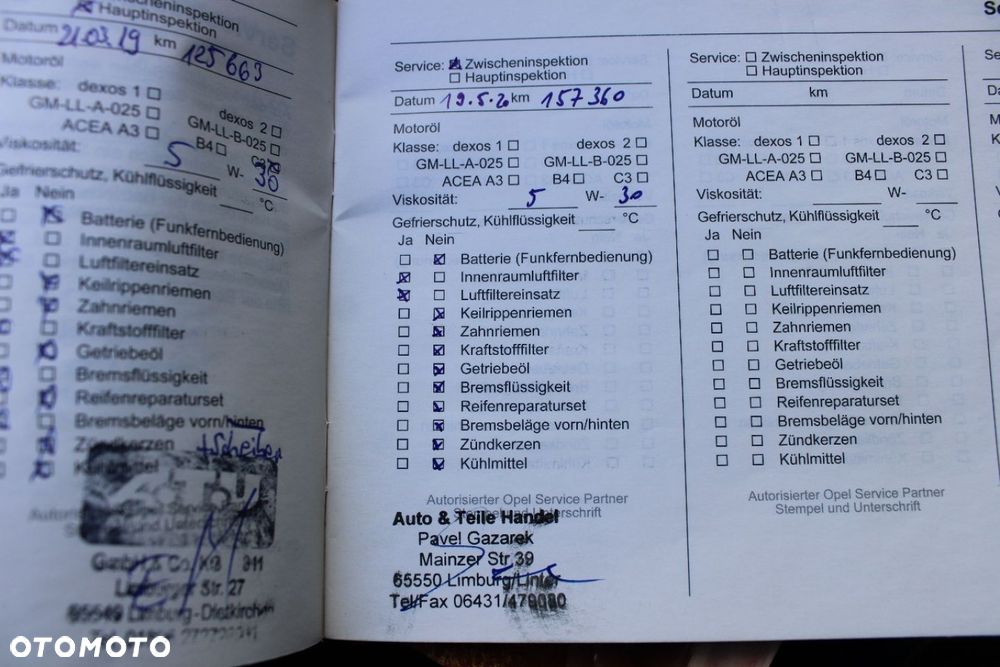 Hauptinspektion
Datum 21.03.19 km 125663
Motoröl
Klasse: dexos 1 ☐ dexos 2 ☐
GM-LL-A-025 ☐ GM-LL-B-025 ☐
ACEA A3 ☐ B4 ☐ C3 ☒
Viskosität: 5 W- 30
Gefrierschutz, Kühlflüssigkeit °C
Ja Nein
Batterie (Funkfernbedienung)
Innenraumluftfilter
Luftfiltereinsatz
Keilrippenriemen
Zahnriemen
Kraftstofffilter
Getriebeöl
Bremsflüssigkeit
Reifenreparaturset
Bremsbeläge vorn/hinten
Zündkerzen +Scheiben
Kühlmittel
GmbH & Co. KG
Str. 27
Limburg-Dietkirchen
Service: ☒ Zwischeninspektion
☐ Hauptinspektion
Datum 19.5.20 km 157360
Motoröl
Klasse: dexos 1 ☐ dexos 2 ☐
GM-LL-A-025 ☐ GM-LL-B-025 ☐
ACEA A3 ☐ B4 ☐ C3 ☐
Viskosität: 5 W- 30
Gefrierschutz, Kühlflüssigkeit °C
Ja Nein
☐ ☒ Batterie (Funkfernbedienung)
☒ ☐ Innenraumluftfilter
☒ ☐ Luftfiltereinsatz
☐ ☒ Keilrippenriemen
☐ ☒ Zahnriemen
☐ ☒ Kraftstofffilter
☐ ☒ Getriebeöl
☐ ☒ Bremsflüssigkeit
☐ ☒ Reifenreparaturset
☐ ☒ Bremsbeläge vorn/hinten
☐ ☒ Zündkerzen
☐ ☒ Kühlmittel
Autorisierter Opel Service Partner
Stempel und Unterschrift
Auto & Teile Handel
Pavel Gazarek
Mainzer Str 39
65550 Limburg/Linter
Tel/Fax 06431/479080
Service: ☐ Zwischeninspektion
☐ Hauptinspektion
Datum km
Motoröl
Klasse: dexos 1 ☐ dexos 2 ☐
GM-LL-A-025 ☐ GM-LL-B-025 ☐
ACEA A3 ☐ B4 ☐ C3 ☐
Viskosität: W-
Gefrierschutz, Kühlflüssigkeit °C
Ja Nein
☐ ☐ Batterie (Funkfernbedienung)
☐ ☐ Innenraumluftfilter
☐ ☐ Luftfiltereinsatz
☐ ☐ Keilrippenriemen
☐ ☐ Zahnriemen
☐ ☐ Kraftstofffilter
☐ ☐ Getriebeöl
☐ ☐ Bremsflüssigkeit
☐ ☐ Reifenreparaturset
☐ ☐ Bremsbeläge vorn/hinten
☐ ☐ Zündkerzen
☐ ☐ Kühlmittel
Autorisierter Opel Service Partner
Stempel und Unterschrift
OTOMOTO